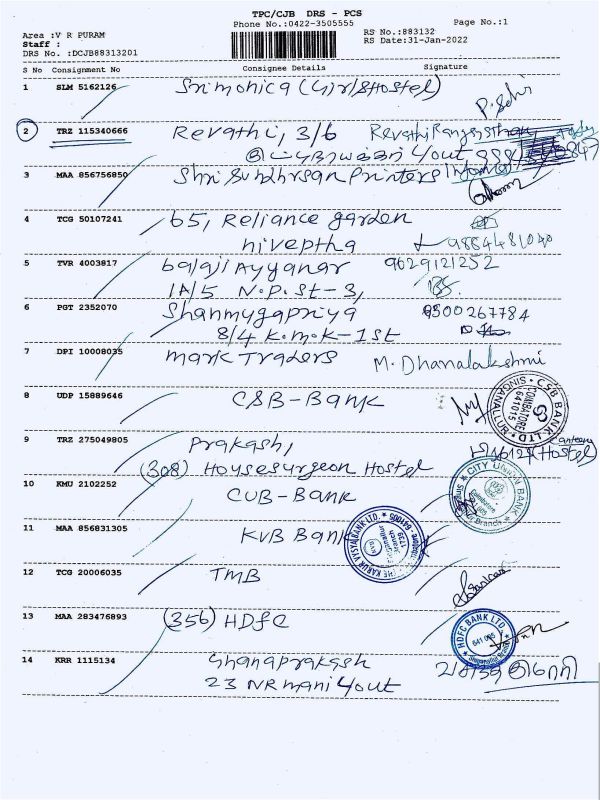 TPC/CJB DRS - PCS
Phone No.:0422-3505555
Page No.:1
Area :V R PURAM
RS No.:883132
Staff :
RS Date:31-Jan-2022
DRS No. :DCJB88313201
S No Consignment No Consignee Details Signature
1 SLM 5162126 Srimonica (Girls Hostel)
2 TRZ 115340666 Revathi, 3/6
3 MAA 856756850 Shri Subdhrsan Printers
4 TCG 50107241 65, Reliance garden
hiveptha 9884481040
5 TVR 4003817 balaji Ayyanar 9629121252
1A/5 N.P.St-3,
6 PGT 2352070 Shanmygapriya 9500267784
8/4 K.M.K-1st
7 DPI 10008035 Mark Traders M. Dhanalakshmi
8 UDP 15889646 CSB-Bank
CSB BANK LTD. SINGANALLUR COIMBATORE 641015
9 TRZ 275049805 Prakash, Canteen
(308) Housesurgeon Hostel Hostel)
10 KMU 2102252 CUB-Bank
CITY UNION BANK
11 MAA 856831305 KVB Bank
THE KARUR VYSYA BANK LTD.
12 TCG 20006035 TMB
13 MAA 283476893 (356) HDFC
HDFC BANK LTD. 641 005
14 KRR 1115134 Ghanaprakash
23 NR Mani Yout